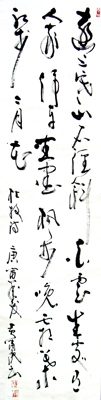 遠上寒山石徑斜白雲生處有
人家停車坐愛楓林晚霜葉
紅於二月花 杜牧詩 庚寅年